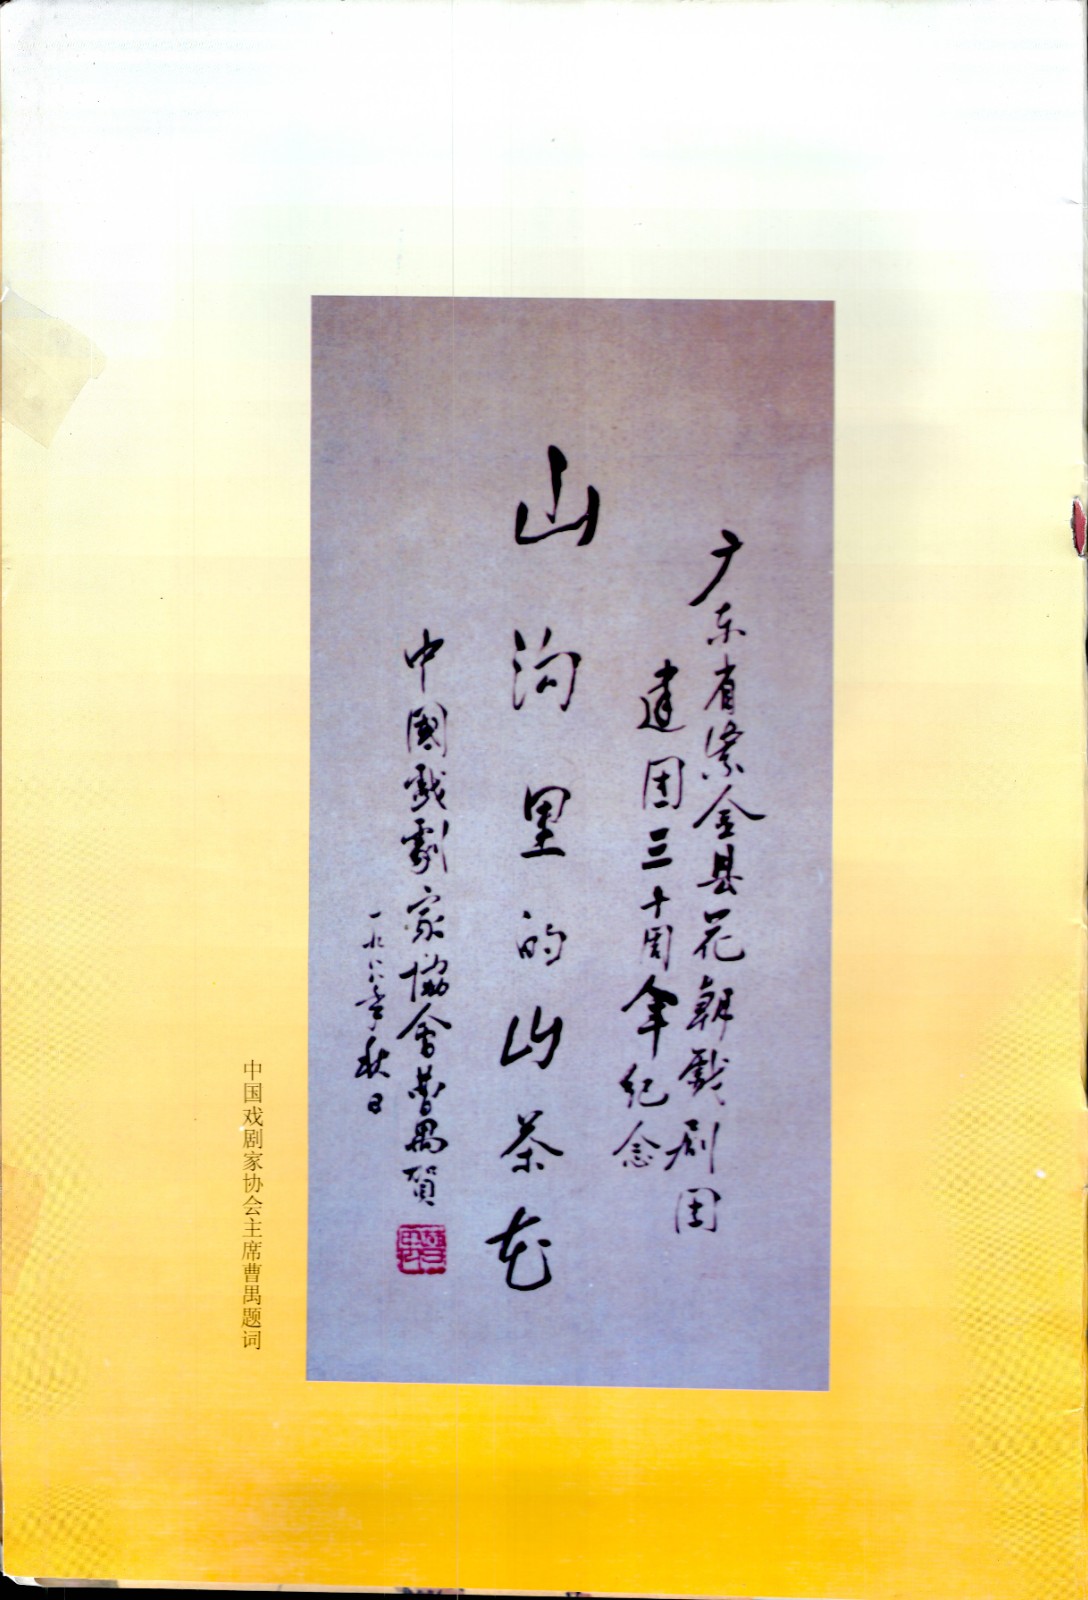 广东省紫金县花朝戏剧团
建团三十周年纪念
山沟里的山茶花
中國戏劇家協會曹禺贺
一九八八年秋日
曹禺
中国戏剧家协会主席曹禺题词